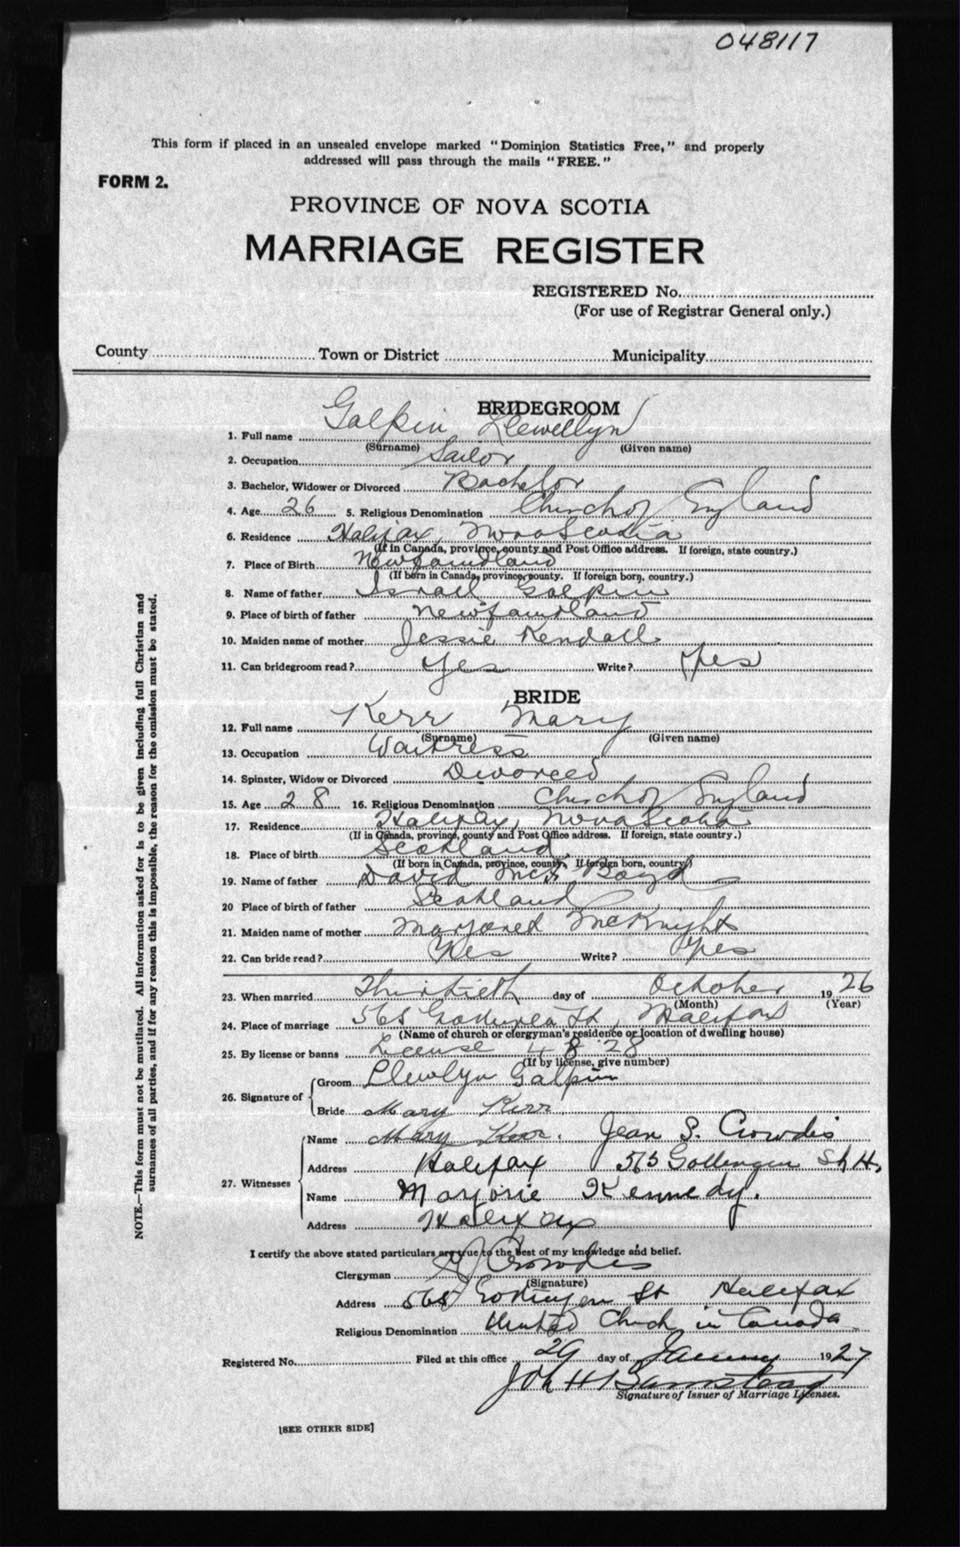 048117
This form if placed in an unsealed envelope marked "Dominion Statistics Free," and properly
addressed will pass through the mails "FREE."
FORM 2.
PROVINCE OF NOVA SCOTIA
MARRIAGE REGISTER
REGISTERED No.
(For use of Registrar General only.)
County Town or District Municipality
BRIDEGROOM
1. Full name Galpin Llewellyn
(Surname) (Given name)
2. Occupation Sailor
3. Bachelor, Widower or Divorced Bachelor
4. Age 26 5. Religious Denomination Church of England
6. Residence Halifax, Nova Scotia
(If in Canada, province, county and Post Office address. If foreign, state country.)
7. Place of Birth Newfoundland
(If born in Canada, province, county. If foreign born, country.)
8. Name of father Israel Galpin
9. Place of birth of father Newfoundland
10. Maiden name of mother Jessie Kendall
11. Can bridegroom read? Yes Write? Yes
BRIDE
12. Full name Kerr Mary
(Surname) (Given name)
13. Occupation Waitress
14. Spinster, Widow or Divorced Divorced
15. Age 28 16. Religious Denomination Church of England
17. Residence Halifax, Nova Scotia
(If in Canada, province, county and Post Office address. If foreign, state country.)
18. Place of birth Scotland
(If born in Canada, province, county. If foreign born, country)
19. Name of father David Boyd
20 Place of birth of father Scotland
21. Maiden name of mother Margaret McKnight
22. Can bride read? Yes Write? Yes
23. When married Thirtieth day of October 1926
(Month) (Year)
24. Place of marriage 565 Gottingen St, Halifax
(Name of church or clergyman's residence or location of dwelling house)
25. By license or banns License 4828
(If by license, give number)
26. Signature of Groom Llewlyn Galpin
Bride Mary Kerr
27. Witnesses Name Mary Kerr. Jean S. Crowdis
Address Halifax 565 Gottingen St H.
Name Marjorie Kennedy.
Address Halifax
I certify the above stated particulars are true to the best of my knowledge and belief.
Clergyman Crowdis
(Signature)
Address 565 Gottingen St Halifax
Religious Denomination United Church in Canada
Registered No. Filed at this office 29 day of January 1927
Signature of Issuer of Marriage Licenses.
[SEE OTHER SIDE]
NOTE.—This form must not be mutilated. All information asked for is to be given including full Christian and
surnames of all parties, and if for any reason this is impossible, the reason for the omission must be stated.